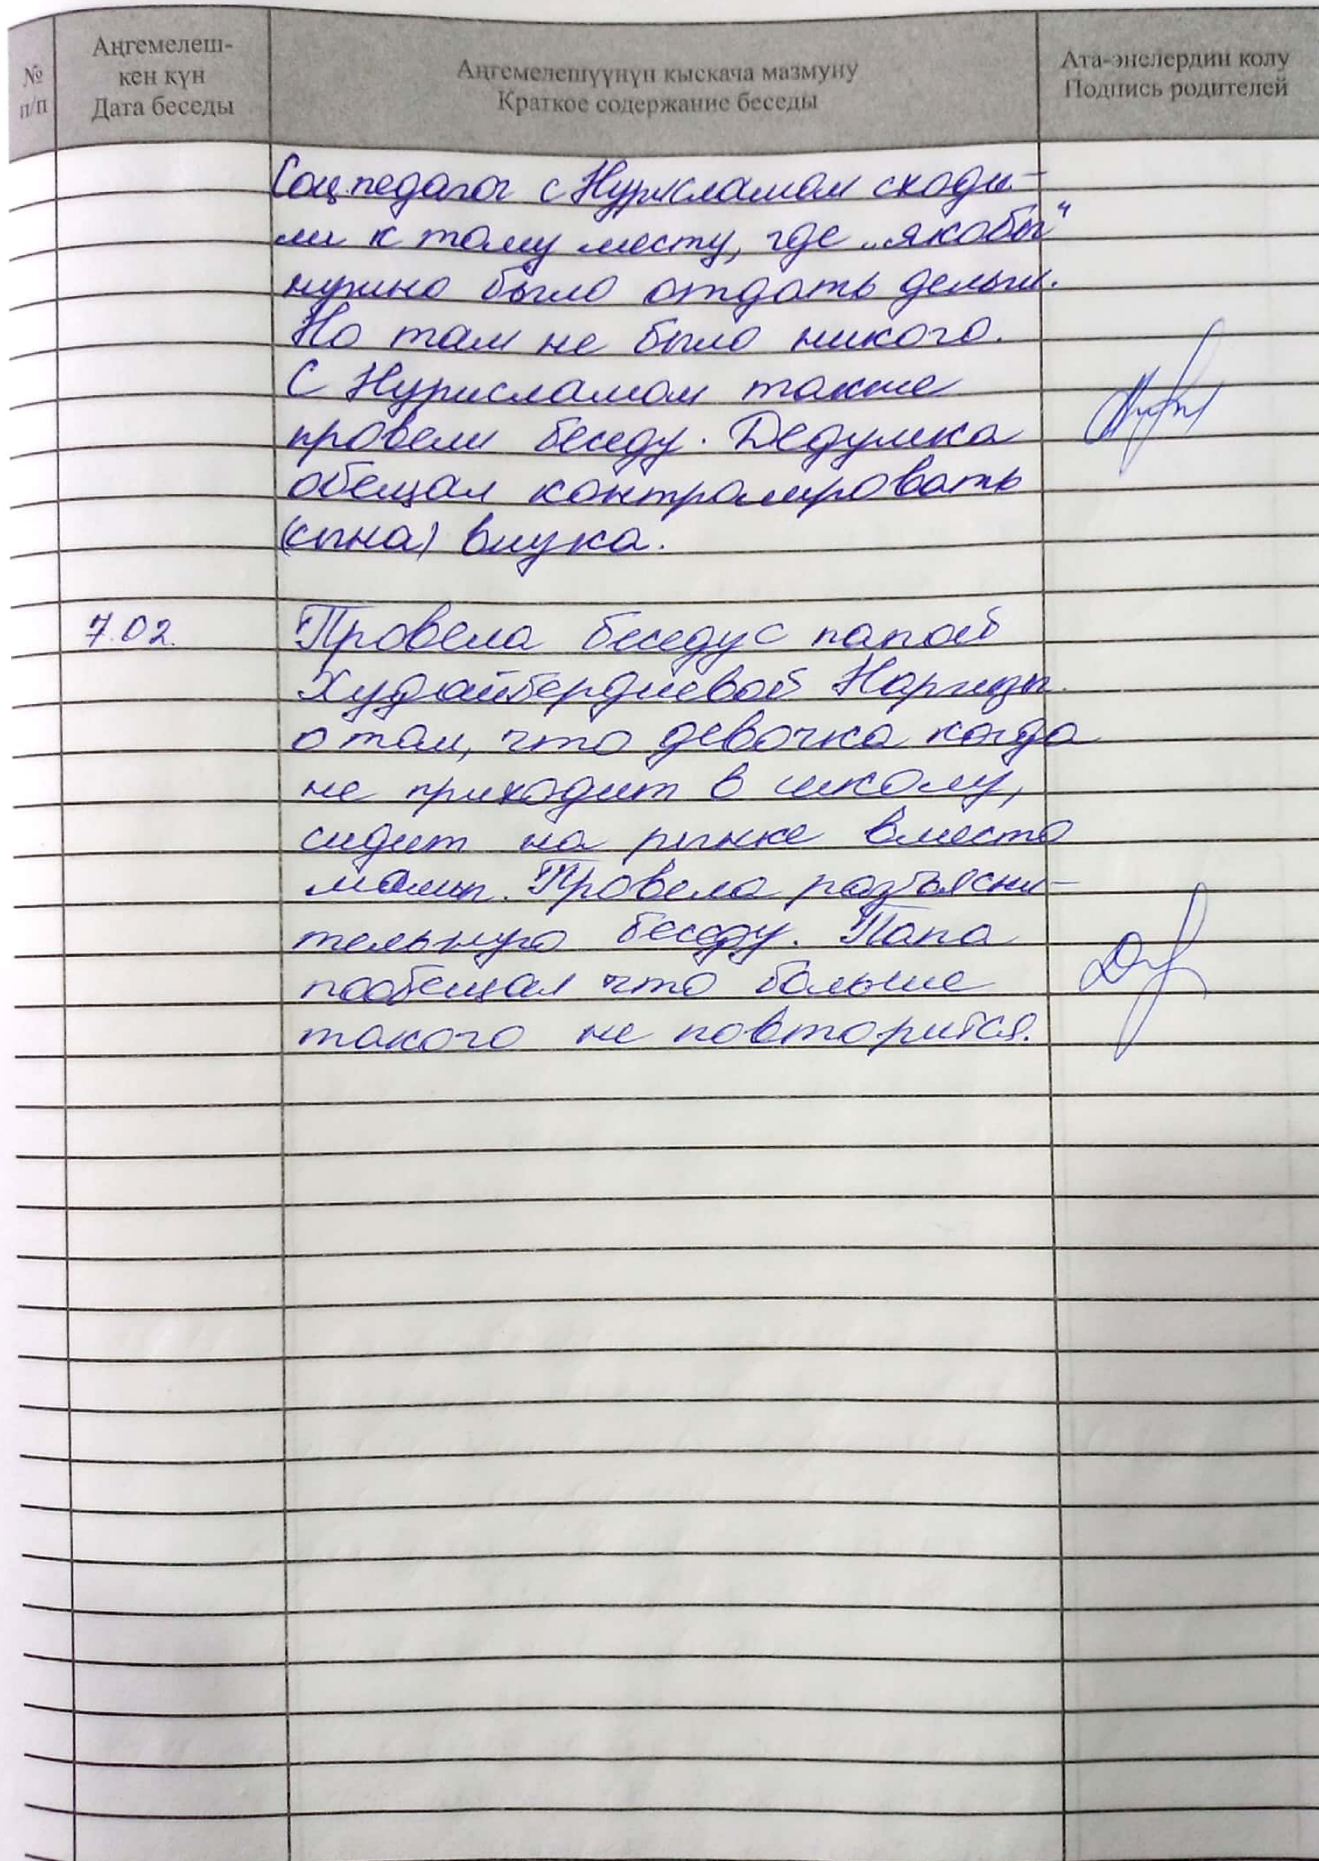 №
п/п
Аңгемелеш-
кен күн
Дата беседы
Аңгемелешүүнүн кыскача мазмуну
Краткое содержание беседы
Ата-энелердин колу
Подпись родителей
Соц.педагог с Нурисламом сходи-
ли к тому месту, где „якобы“
нужно было отдать деньги.
Но там не было никого.
С Нурисламом также
провели беседу. Дедушка
обещал контролировать
(сына) внука.
7.02.
Провела беседу с папой
Худайбердиевой Наргизы
о том, что девочка когда
не приходит в школу,
сидит на рынке вместо
мамы. Провела разъясни-
тельную беседу. Папа
пообещал что больше
такого не повторится.